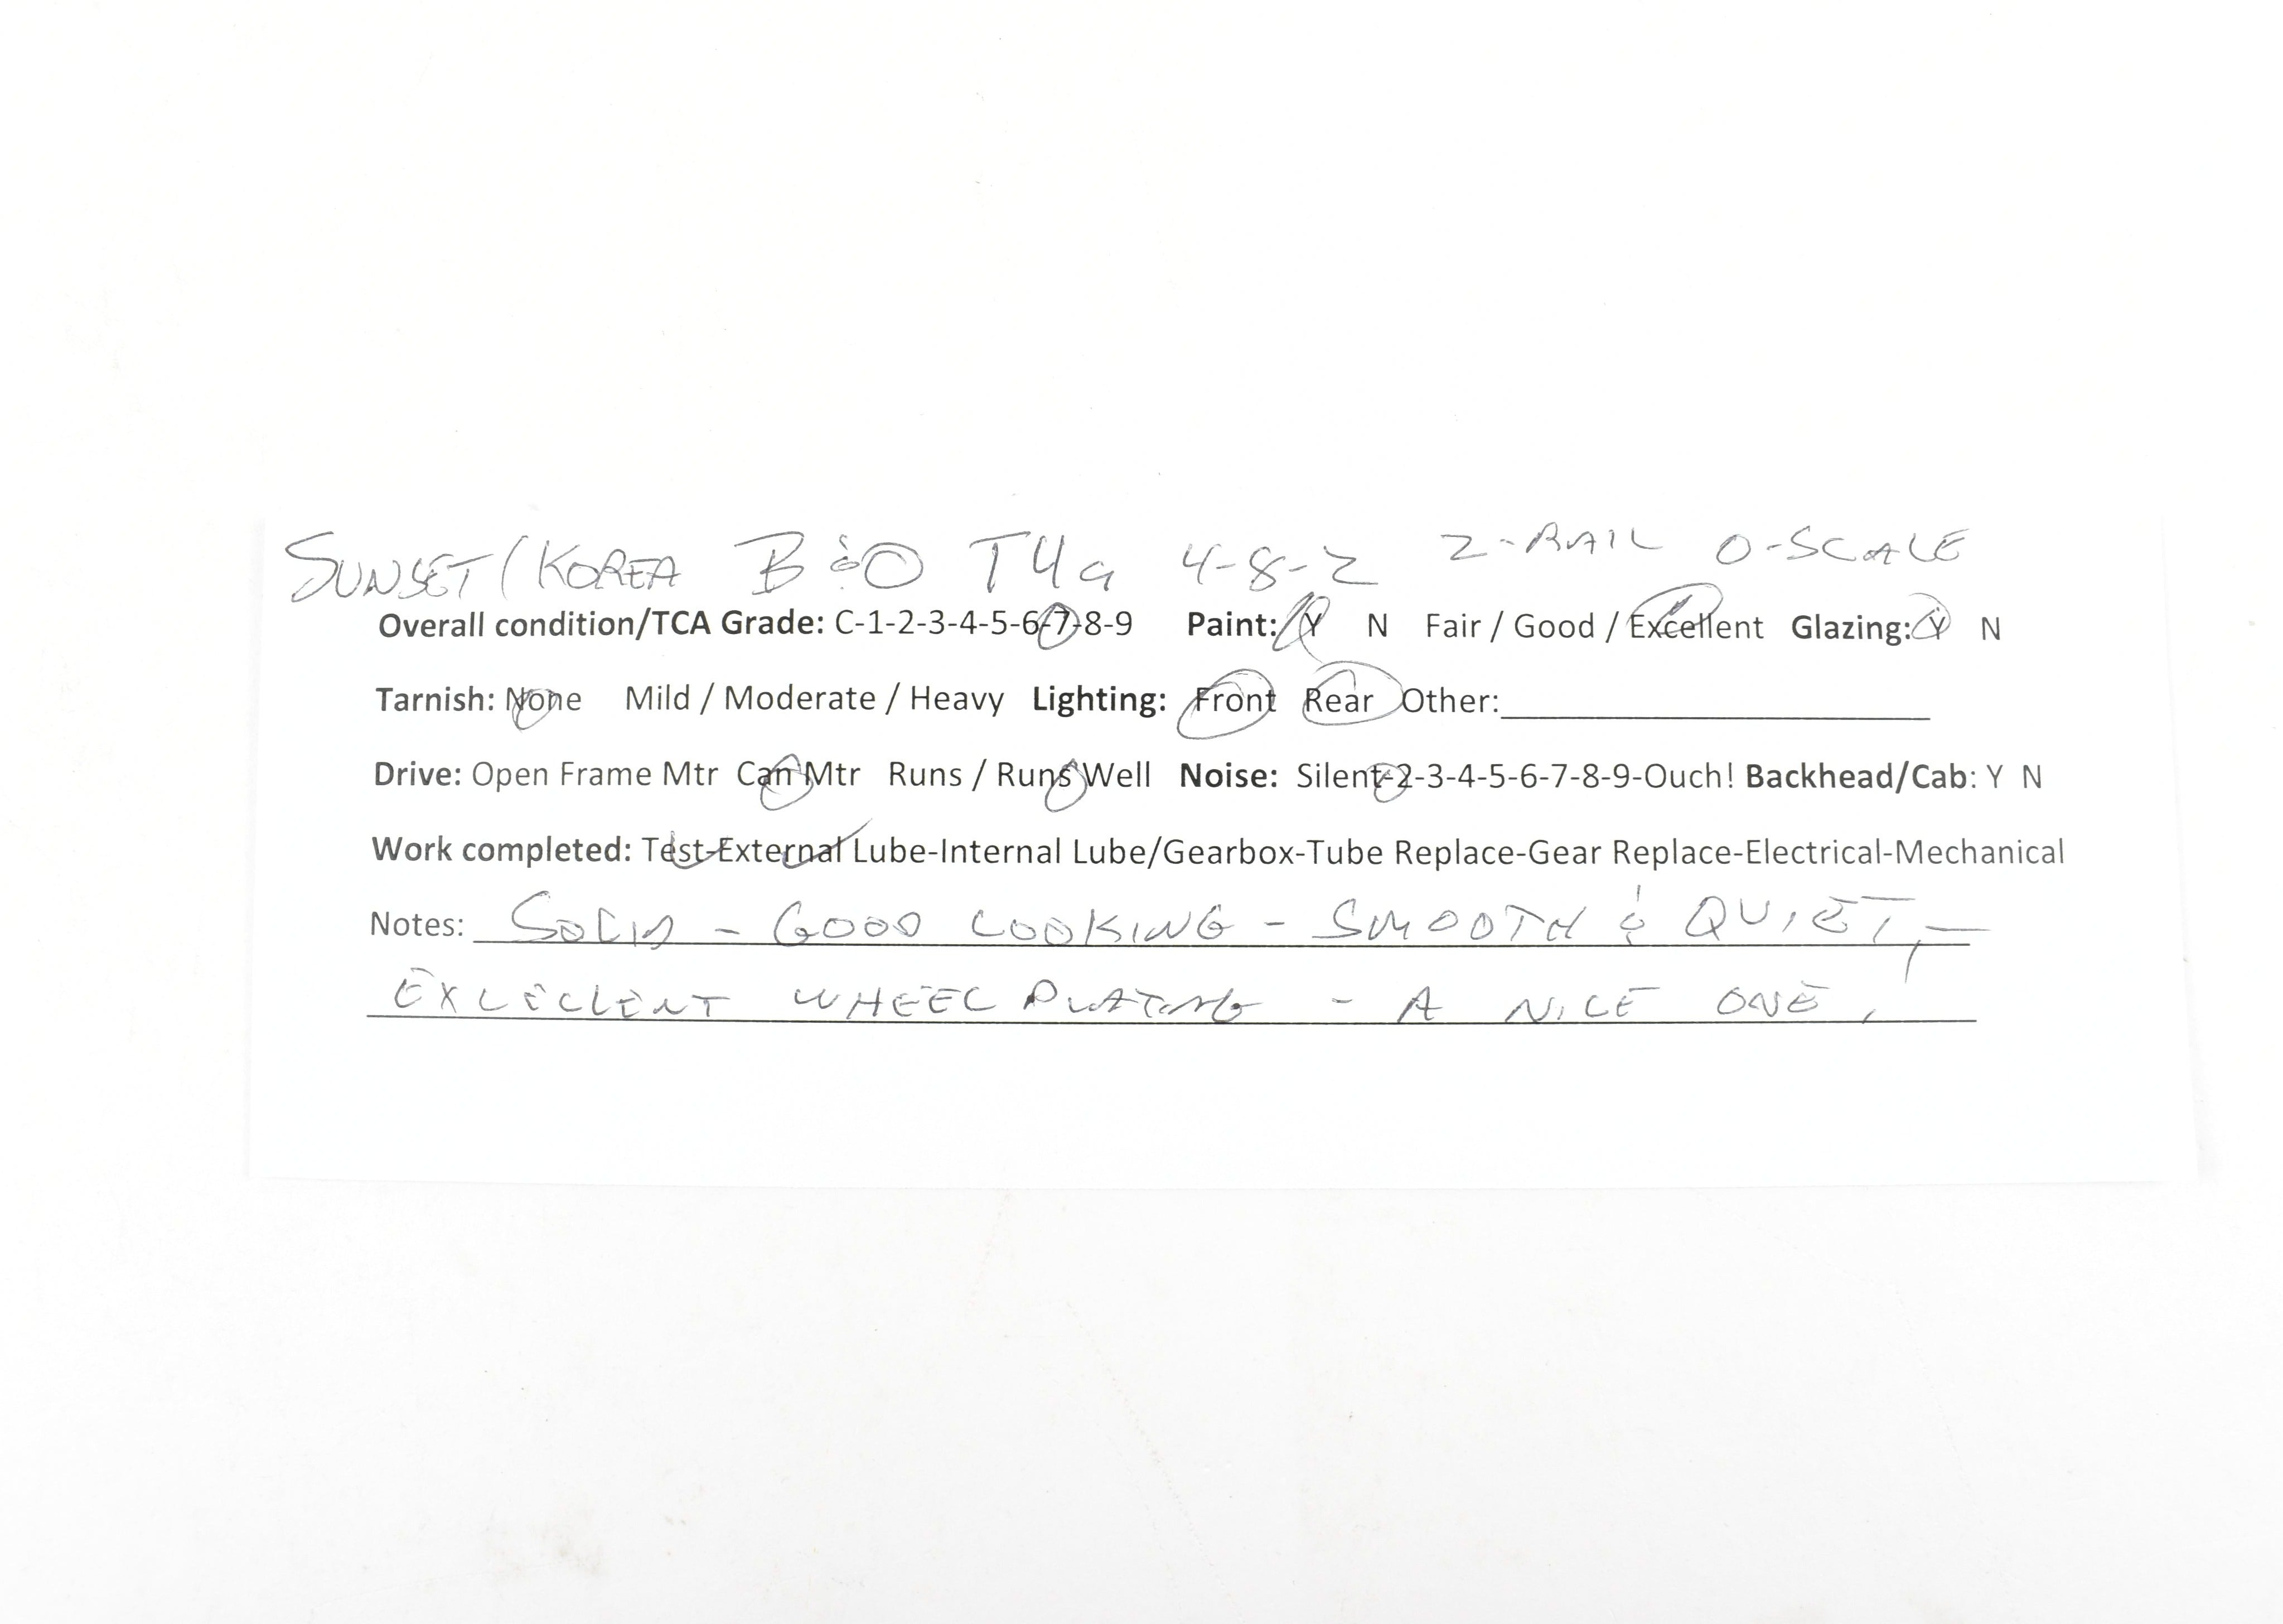 SUNSET/KOREA B&O T4a 4-8-2 2-RAIL O-SCALE
Overall condition/TCA Grade: C-1-2-3-4-5-6-7-8-9 Paint: Y N Fair / Good / Excellent Glazing: Y N
Tarnish: None Mild / Moderate / Heavy Lighting: Front Rear Other:
Drive: Open Frame Mtr Can Mtr Runs / Runs Well Noise: Silent-2-3-4-5-6-7-8-9-Ouch! Backhead/Cab: Y N
Work completed: Test-External Lube-Internal Lube/Gearbox-Tube Replace-Gear Replace-Electrical-Mechanical
Notes: SOLID - GOOD LOOKING - SMOOTH & QUIET, -
EXCELLENT WHEEL PLATING - A NICE ONE,